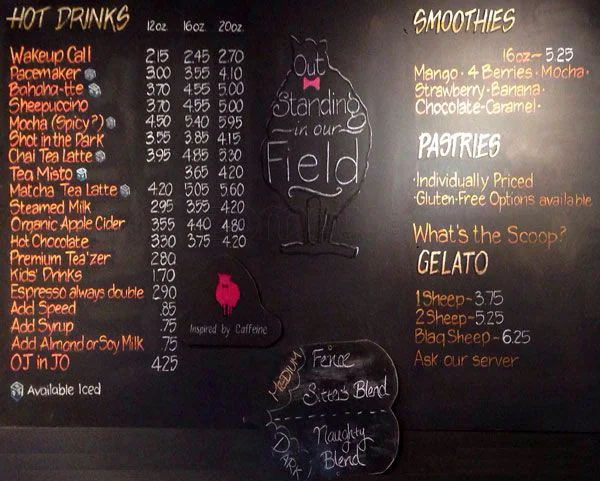 HOT DRINKS 12oz. 16oz. 20oz.
Wakeup Call 2.15 2.45 2.70
Pacemaker 3.00 3.55 4.10
Bahaha-tte 3.70 4.55 5.00
Sheepuccino 3.70 4.55 5.00
Mocha (Spicy?) 4.50 5.40 5.95
Shot in the Dark 3.55 3.85 4.15
Chai Tea Latte 3.95 4.85 5.30
Tea Misto 3.65 4.20
Matcha Tea Latte 4.20 5.05 5.60
Steamed Milk 2.95 3.55 4.20
Organic Apple Cider 3.55 4.40 4.80
Hot Chocolate 3.30 3.75 4.20
Premium Tea'zer 2.80
Kids' Drinks 1.70
Espresso always double 2.90
Add Speed .85
Add Syrup .75
Add Almond or Soy Milk .75
OJ in JO 4.25
Available Iced
Out
Standing
in our
Field
Inspired by Caffeine
MEDIUM
Fence
Sitter's Blend
DARK
Naughty
Blend
SMOOTHIES
16oz~ 5.25
Mango · 4 Berries · Mocha ·
Strawberry · Banana ·
Chocolate-Caramel ·
PASTRIES
·Individually Priced
·Gluten-Free Options available
What's the Scoop?
GELATO
1 Sheep~3.75
2 Sheep~5.25
Blaq Sheep~6.25
Ask our server